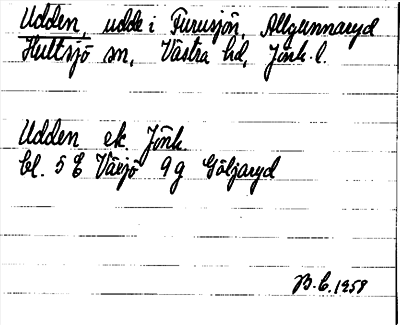 Udden, udde i Furusjön, Allgunnaryd
Hultsjö sn, Västra hd, Jönk. l.
Udden ek. Jönk.
bl. 5 E Växjö 9 g Göljaryd
B. E. 1958